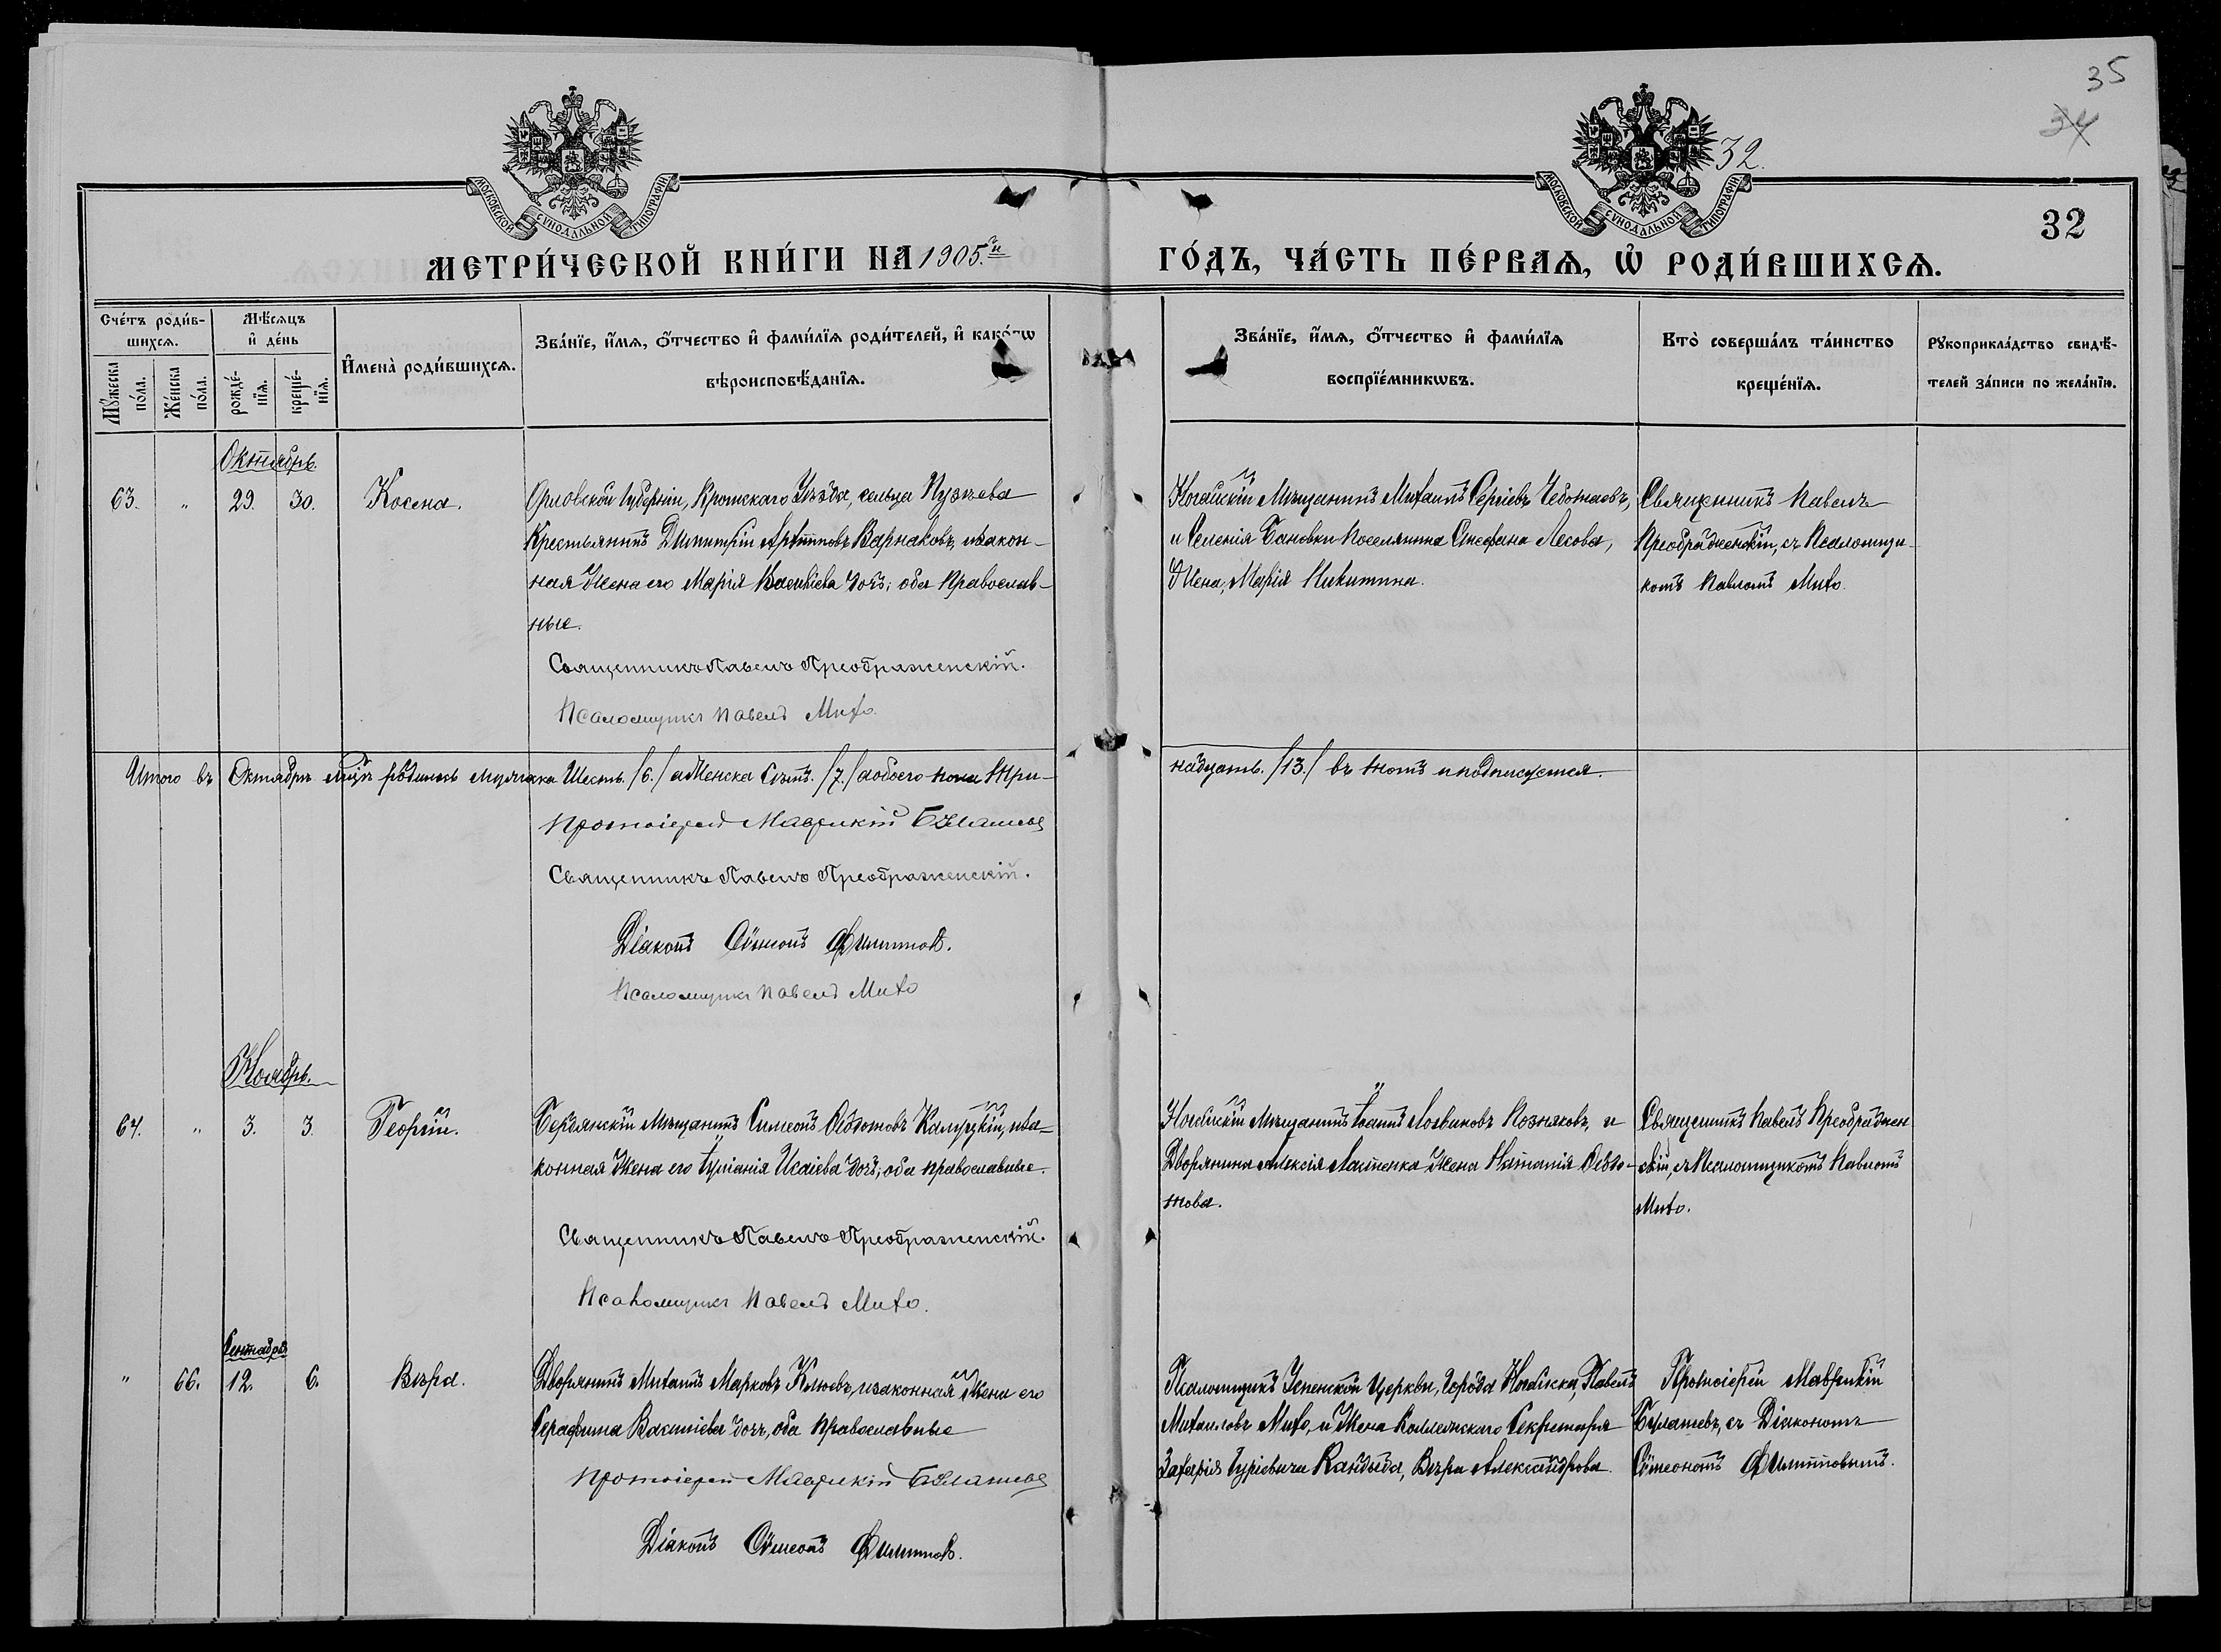 35
34
32.
32
МОСКОВСКОЙ СѴНОДАЛЬНОЙ ТИПОГРАФІИ
МОСКОВСКОЙ СѴНОДАЛЬНОЙ ТИПОГРАФІИ
МЕТРИ́ЧЕСКОЙ КНИ́ГИ НА 1905.й
ГО́ДЪ, ЧА́СТЬ ПЕ́РВАѦ, Ѡ҆ РОДИ́ВШИХСѦ.
Сче́тъ роди́в-
шихсѧ.
Мѣ́сѧцъ
и҆ де́нь
Мꙋ́жеска по́ла.
Же́нска по́ла.
рожде́-
нїѧ.
креще́-
нїѧ.
И҆мена̀ роди́вшихсѧ.
Зва́нїе, и҆́мѧ, ѻ҆́тчество и҆ фами́лїѧ роди́телей, и҆ како́гѡ
вѣроисповѣ́данїѧ.
Зва́нїе, и҆́мѧ, ѻ҆́тчество и҆ фами́лїѧ
воспрїе́мникѡвъ.
Кто̀ соверша́лъ та́инство
креще́нїѧ.
Рꙋкоприкла́дство свидѣ́-
телей за́писи по жела́нїю.
Октябрь.
63. " 29. 30. Косьма.
Орловской Губерніи, Кромскаго Уѣзда, сельца Пузѣева
Крестьянинъ Димитрій Варнаковъ, изакон-
ная Жена его Марія дочь; оба Православ-
ные.
Священникъ Павелъ Преображенскій.
Псаломщикъ Павелъ Михо.
Ногайскій Мѣщанинъ Михаилъ Сергіевъ
и Селенія Бановки Поселянина Стефана Лесова,
Жена, Марія Никитина.
Священникъ Павелъ
Преображенскій, съ Псаломщи-
комъ Павломъ Михо.
Итого въ Октябрѣ родилось мужеска Шесть. /6./ аЖенска Семь. /7./ аобоего пола три-
надцать. /13./ въ томъ иподписуемся.
Протоіерей Маврикій Булашевъ
Священникъ Павелъ Преображенскій.
Діаконъ Сѵмеонъ Филипповъ.
Псаломщикъ Павелъ Михо
Ноябрь.
64. " 3. 3. Георгій.
Бердянскій Мѣщанинъ Симеонъ Калуцкій, иза-
конная Жена его Исаіева дочь; оба православные.
Священникъ Павелъ Преображенскій.
Псаломщикъ Павелъ Михо.
Ногайскій Мѣщанинъ Іоаннъ Логвиновъ Позняковъ, и
Дворянина Алексія Жена Наталія
това.
Священникъ Павелъ Преображен
скій, съ Псаломщикомъ Павломъ
Михо.
Сентября
" 66. 12. 6. Вѣра.
Дворянинъ Михаилъ Марковъ Клюевъ, изаконная Жена его
Серафима Василіева дочь, оба православные
Протоіерей Маврикій Булашевъ
Діаконъ Сѵмеонъ Филипповъ.
Псаломщикъ Успенской Церкви, Города Ногайска, Павелъ
Михаиловъ Михо, и Жена Коллежскаго Секретаря
Захарія Гуріевича Кандыба, Вѣра Александрова.
Протоіерей Маврикій
Булашевъ, съ Діакономъ
Сѵмеономъ Филипповымъ.